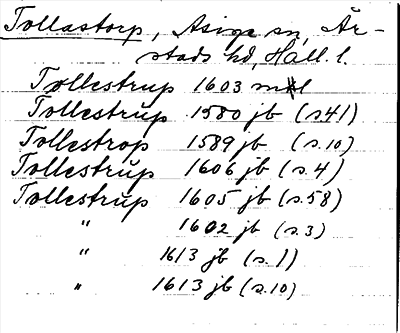 Tollastorp, Asige sn, År-
stads hd, Hall. l.
Tollestrup 1603 mtl
Tollestrup 1580 jb (s.41)
Tollestrop 1589 jb (s.10)
Tollestrup 1606 jb (s.4)
Tollestrup 1605 jb (s.58)
" 1602 jb (s.3)
" 1613 jb (s.1)
" 1613 jb (s.10)